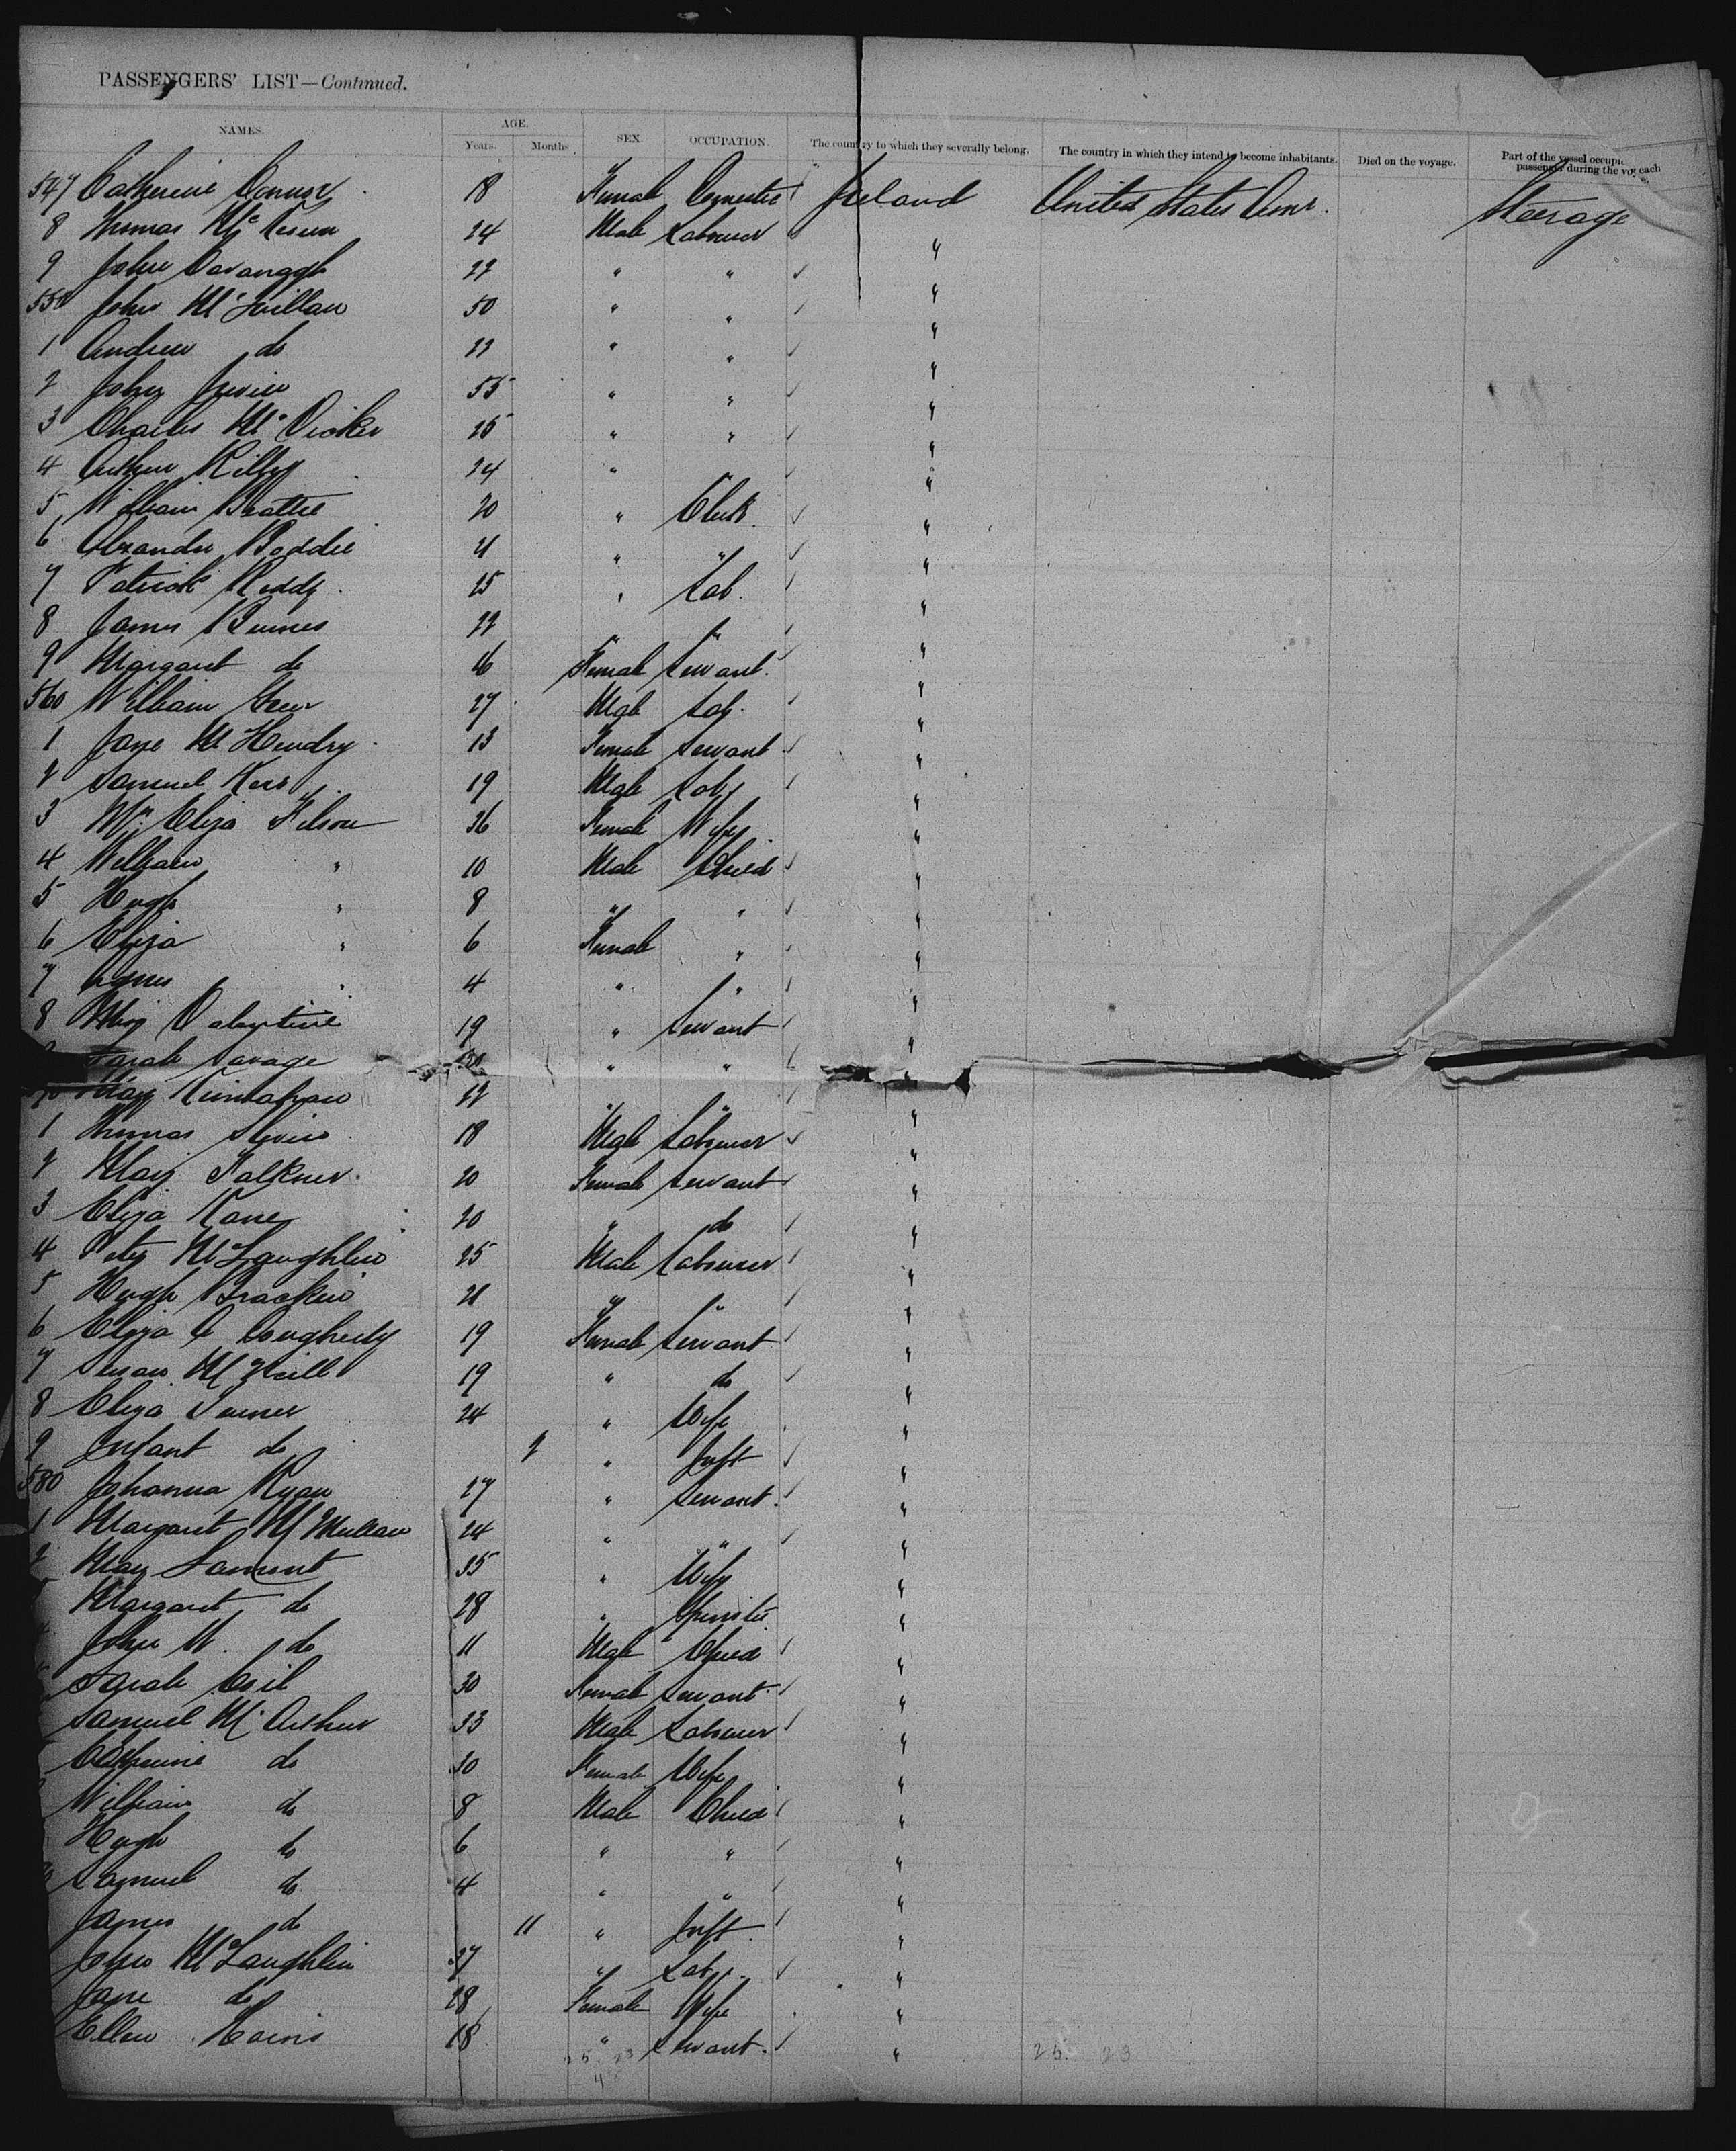 PASSENGERS' LIST—Continued.
NAMES. AGE. Years. Months SEX. OCCUPATION. The country to which they severally belong. The country in which they intend to become inhabitants. Died on the voyage. Part of the vessel occupie passenger during the voy each
547 Catherine Connor 18 Female Domestic Ireland United States Amr. Steerage
8 Thomas 24 Male Labourer "
9 John Cavanagh 22 " " "
550 John McQuillan 50 " " "
1 Andrew do 22 " " "
2 John Irwin 55 " " "
3 Charles McVicker 25 " " "
4 Arthur Killey 24 " " "
5 William Beattie 20 " Clerk "
6 Alexander Boddie 21 " " "
7 Patrick Reddy 25 " Lab. "
8 James Burnes 22 " " "
9 Margaret do 16 Female Servant. "
560 William Greer 27 Male Lab. "
1 Jane McHendry 13 Female Servant "
2 Samuel Kerr 19 Male Lab. "
3 Mrs Eliza Filson 36 Female Wife "
4 William " 10 Male Child "
5 Hugh " 8 " " "
6 Eliza " 6 Female " "
7 Agnes " 4 " " "
8 Valentine 19 " Servant "
Sarah Savage 20 " " "
70 Mary 22 " " "
1 Thomas 18 Male Labourer "
2 Mary Falkner 20 Female Servant "
3 Eliza Kane 20 " do "
4 Peter McLaughlin 25 Male Labourer "
5 Hugh Brackin 21 " " "
6 Eliza O'Dougherty 19 Female Servant "
7 Susan McNeill 19 " do "
8 Eliza 24 " Wife "
9 Infant do 2 " Inft "
580 Johanna Ryan 27 " Servant. "
1 Margaret McMullan 24 " " "
2 Mary Lamont 35 " Wife "
Margaret do 28 " Spinster "
John W. do 11 Male Child "
Sarah 30 Female Servant "
Samuel McArthur 33 Male Labourer "
Catherine do 30 Female Wife "
William do 8 Male Child "
Hugh do 6 " " "
Samuel do 4 " " "
James do 11 " Inft "
John McLaughlin 37 " Lab. "
Jane do 28 Female Wife "
Ellen 18 " Servant. "
25 23 25. 23